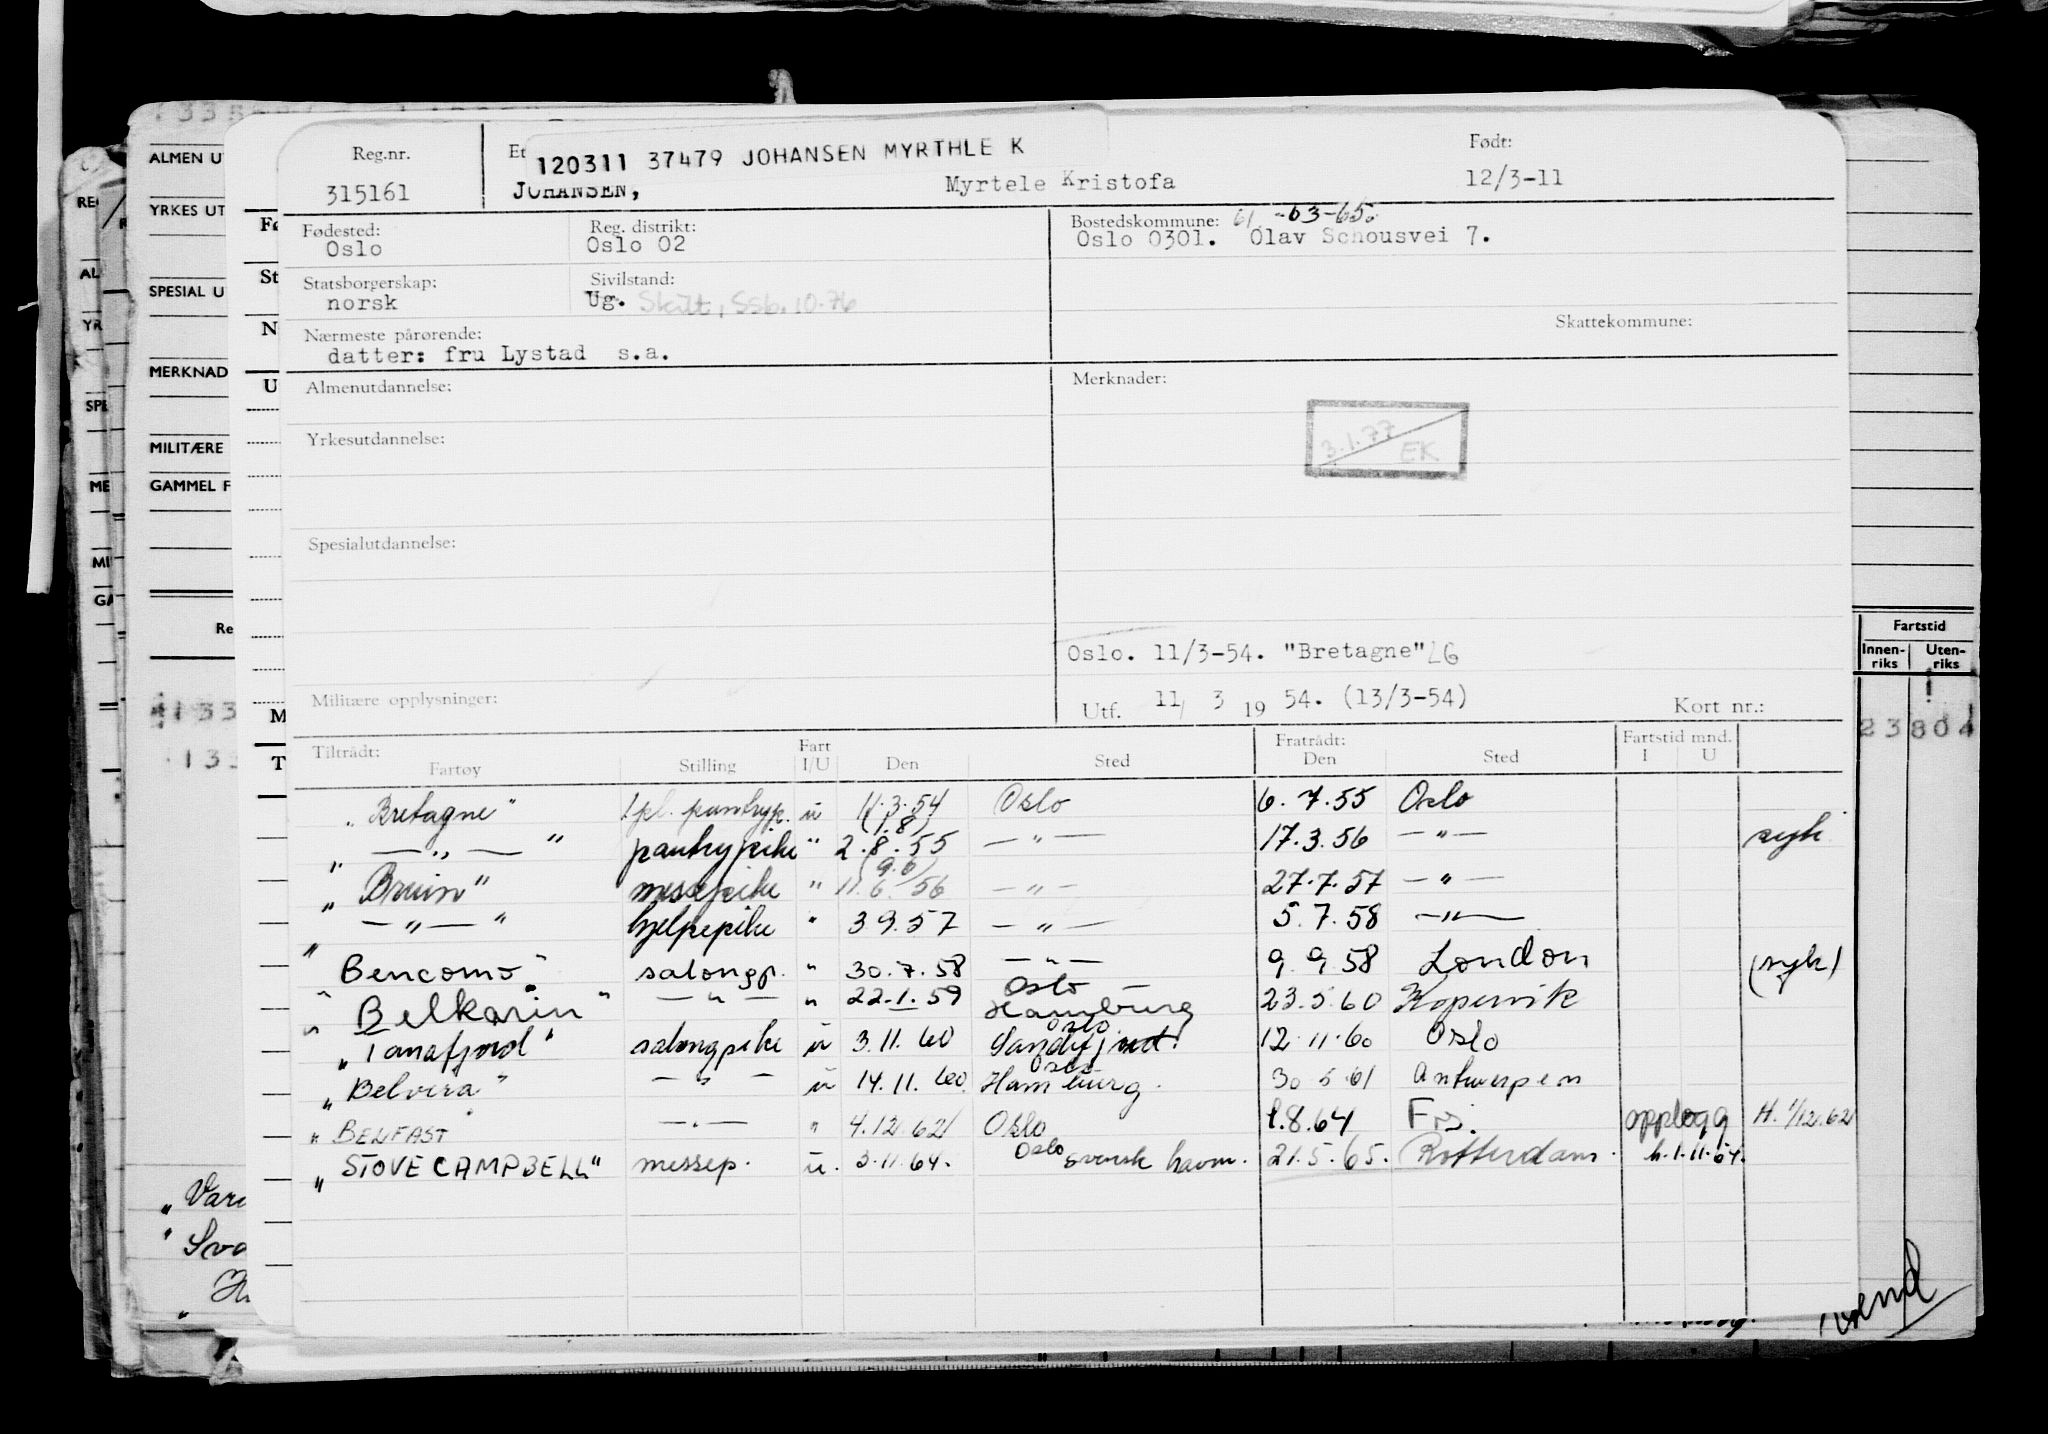 Reg.nr. Et Født:
120311 37479 JOHANSEN MYRTHLE K
315161 JOHANSEN, Myrtele Kristofa 12/3-11
Fødested: Reg. distrikt: Bostedskommune: 61 -63-65.
Oslo Oslo 02 Oslo 0301. Olav Schousvei 7.
Statsborgerskap: Sivilstand:
norsk Ug. Skilt, Ssb. 10.76
Nærmeste pårørende: Skattekommune:
datter: fru Lystad s.a.
Almenutdannelse: Merknader:
3.1.77 EK
Yrkesutdannelse:
Spesialutdannelse:
Oslo. 11/3-54. "Bretagne" LG
Militære opplysninger: Utf. 11, 3 19 54. (13/3-54) Kort nr.:
Tiltrådt: Fart Fratrådt: Fartstid mnd.
Fartøy Stilling I/U Den Sted Den Sted I U
"Bretagne" 1pl. pantryp. u 11.3.54 Oslo 6.7.55 Oslo
(1.8)
" — " — " pantrypike " 2.8.55 — " — 17.3.56 — " — syk
(9.6)
"Bruin" messepike " 11.6.56 — " — 27.7.57 — " —
" — " — " hjelpepike " 3.9.57 — " — 5.7.58 — " —
"Bencomo" salongp. " 30.7.58 — " — 9.9.58 London (syk)
Oslo
"Belkarin" — " — " 22.1.59 Hamburg 23.5.60 Kopervik
Oslo
"Tanafjord" salongpike u 3.11.60 Sandefjord. 12.11.60 Oslo
Oslo
"Belvera" — " — u 14.11.60 Hamburg. 30 5 61 Antwerpen
"BELFAST — " — " 4.12.62 Oslo 1.8.64 opplagg H. 1/12.62
"STOVE CAMPBELL" messep. u. 3.11.64. Oslo svensk havn. 21.5.65. Rotterdam. h.1.11.64.
ALMEN U
YRKES UT
SPESIAL U
MERKNAD
MILITÆRE
GAMMEL F
Re
Fartstid
Innen-riks Uten-riks
23804
"Vare
"Sva
vend